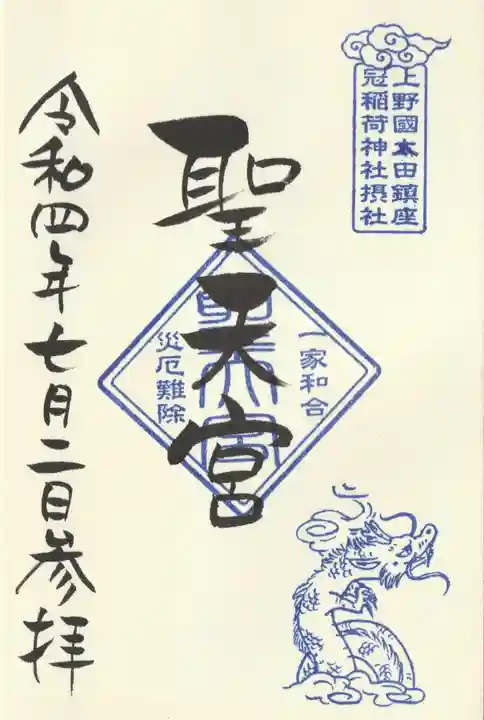 上野國太田鎮座
冠稲荷神社摂社
聖天宮
一家和合
聖天宮
災厄難除
令和四年七月二日参拝